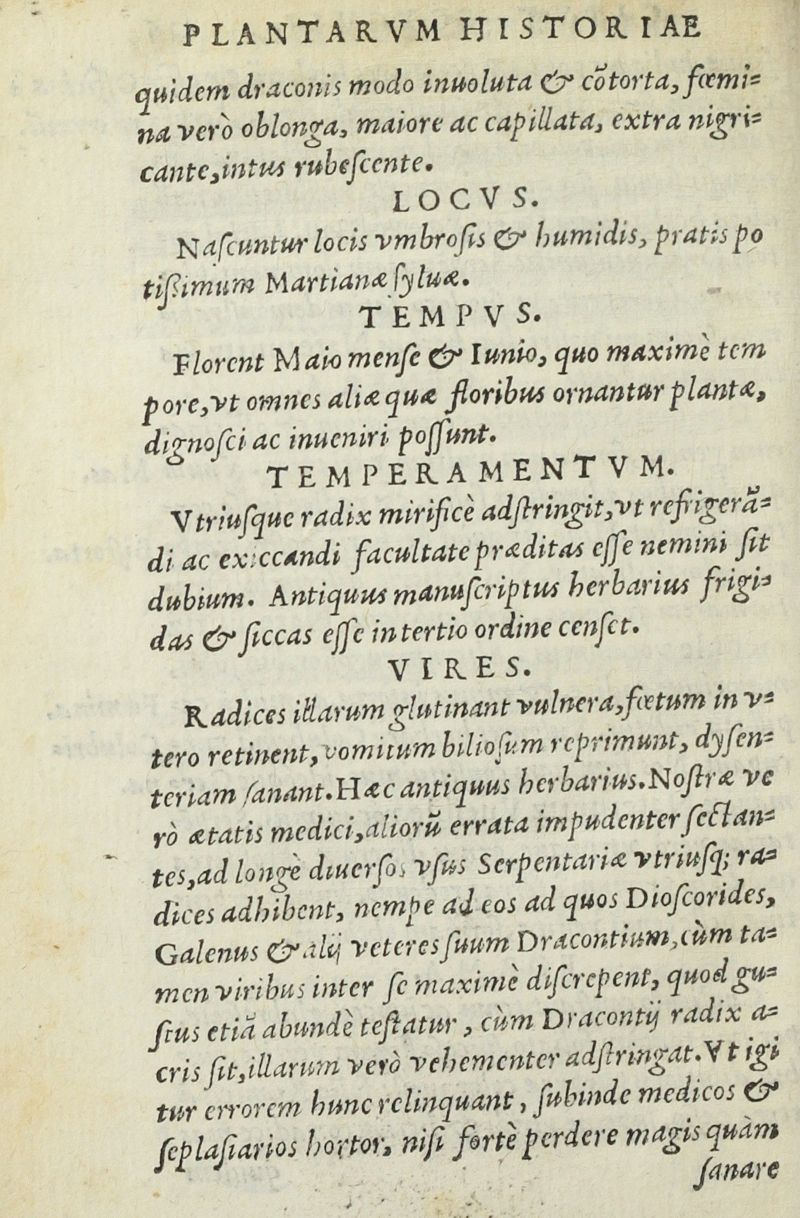 PLANTARVM HISTORIAE
quidem draconis modo inuoluta & cõtorta, fœmi=
na verò oblonga, maiore ac capillata, extra nigri=
cante, intus rubeſcente.
LOCVS.
Naſcuntur locis vmbroſis & humidis, pratis po
tiſsimum Martianæ ſyluæ.
TEMPVS.
Florent Maio menſe & Iunio, quo maximè tem
pore, vt omnes aliæ quæ floribus ornantur plantæ,
dignoſci ac inueniri poſſunt.
TEMPERAMENTVM.
Vtriuſque radix mirificè adſtringit, vt refrigerã=
di ac exiccandi facultate præditas eſſe nemini ſit
dubium. Antiquus manuſcriptus herbarius frigi=
das & ſiccas eſſe in tertio ordine cenſet.
VIRES.
Radices illarum glutinant vulnera, fœtum in v=
tero retinent, vomitum bilioſum reprimunt, dyſen=
teriam ſanant. Hæc antiquus herbarius. Noſtræ ve
rò ætatis medici, aliorũ errata impudenter ſectan=
tes, ad longè diuerſos vſus Serpentariæ vtriuſq; ra=
dices adhibent, nempe ad eos ad quos Dioſcorides,
Galenus & alij veteres ſuum Dracontium, cùm ta=
men viribus inter ſe maximè diſcrepent, quod gu=
ſtus etiã abundè teſtatur, cùm Dracontij radix a=
cris ſit, illarum verò vehementer adſtringat. Vt igi
tur errorem hunc relinquant, ſubinde medicos &
ſeplaſiarios hortor, niſi fortè perdere magis quàm
ſanare